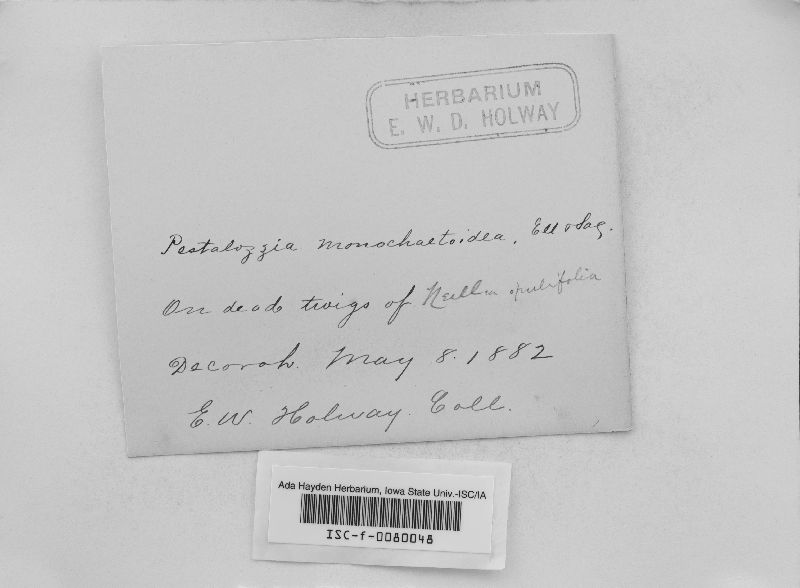 HERBARIUM
E. W. D. HOLWAY
Pestalozzia monochaetoidea, Ell & Sac.
On dead twigs of Neillia opulifolia
Decorah. May 8. 1882
E. W. Holway. Coll.
Ada Hayden Herbarium, Iowa State Univ.-ISC/IA
ISC-f-0080048